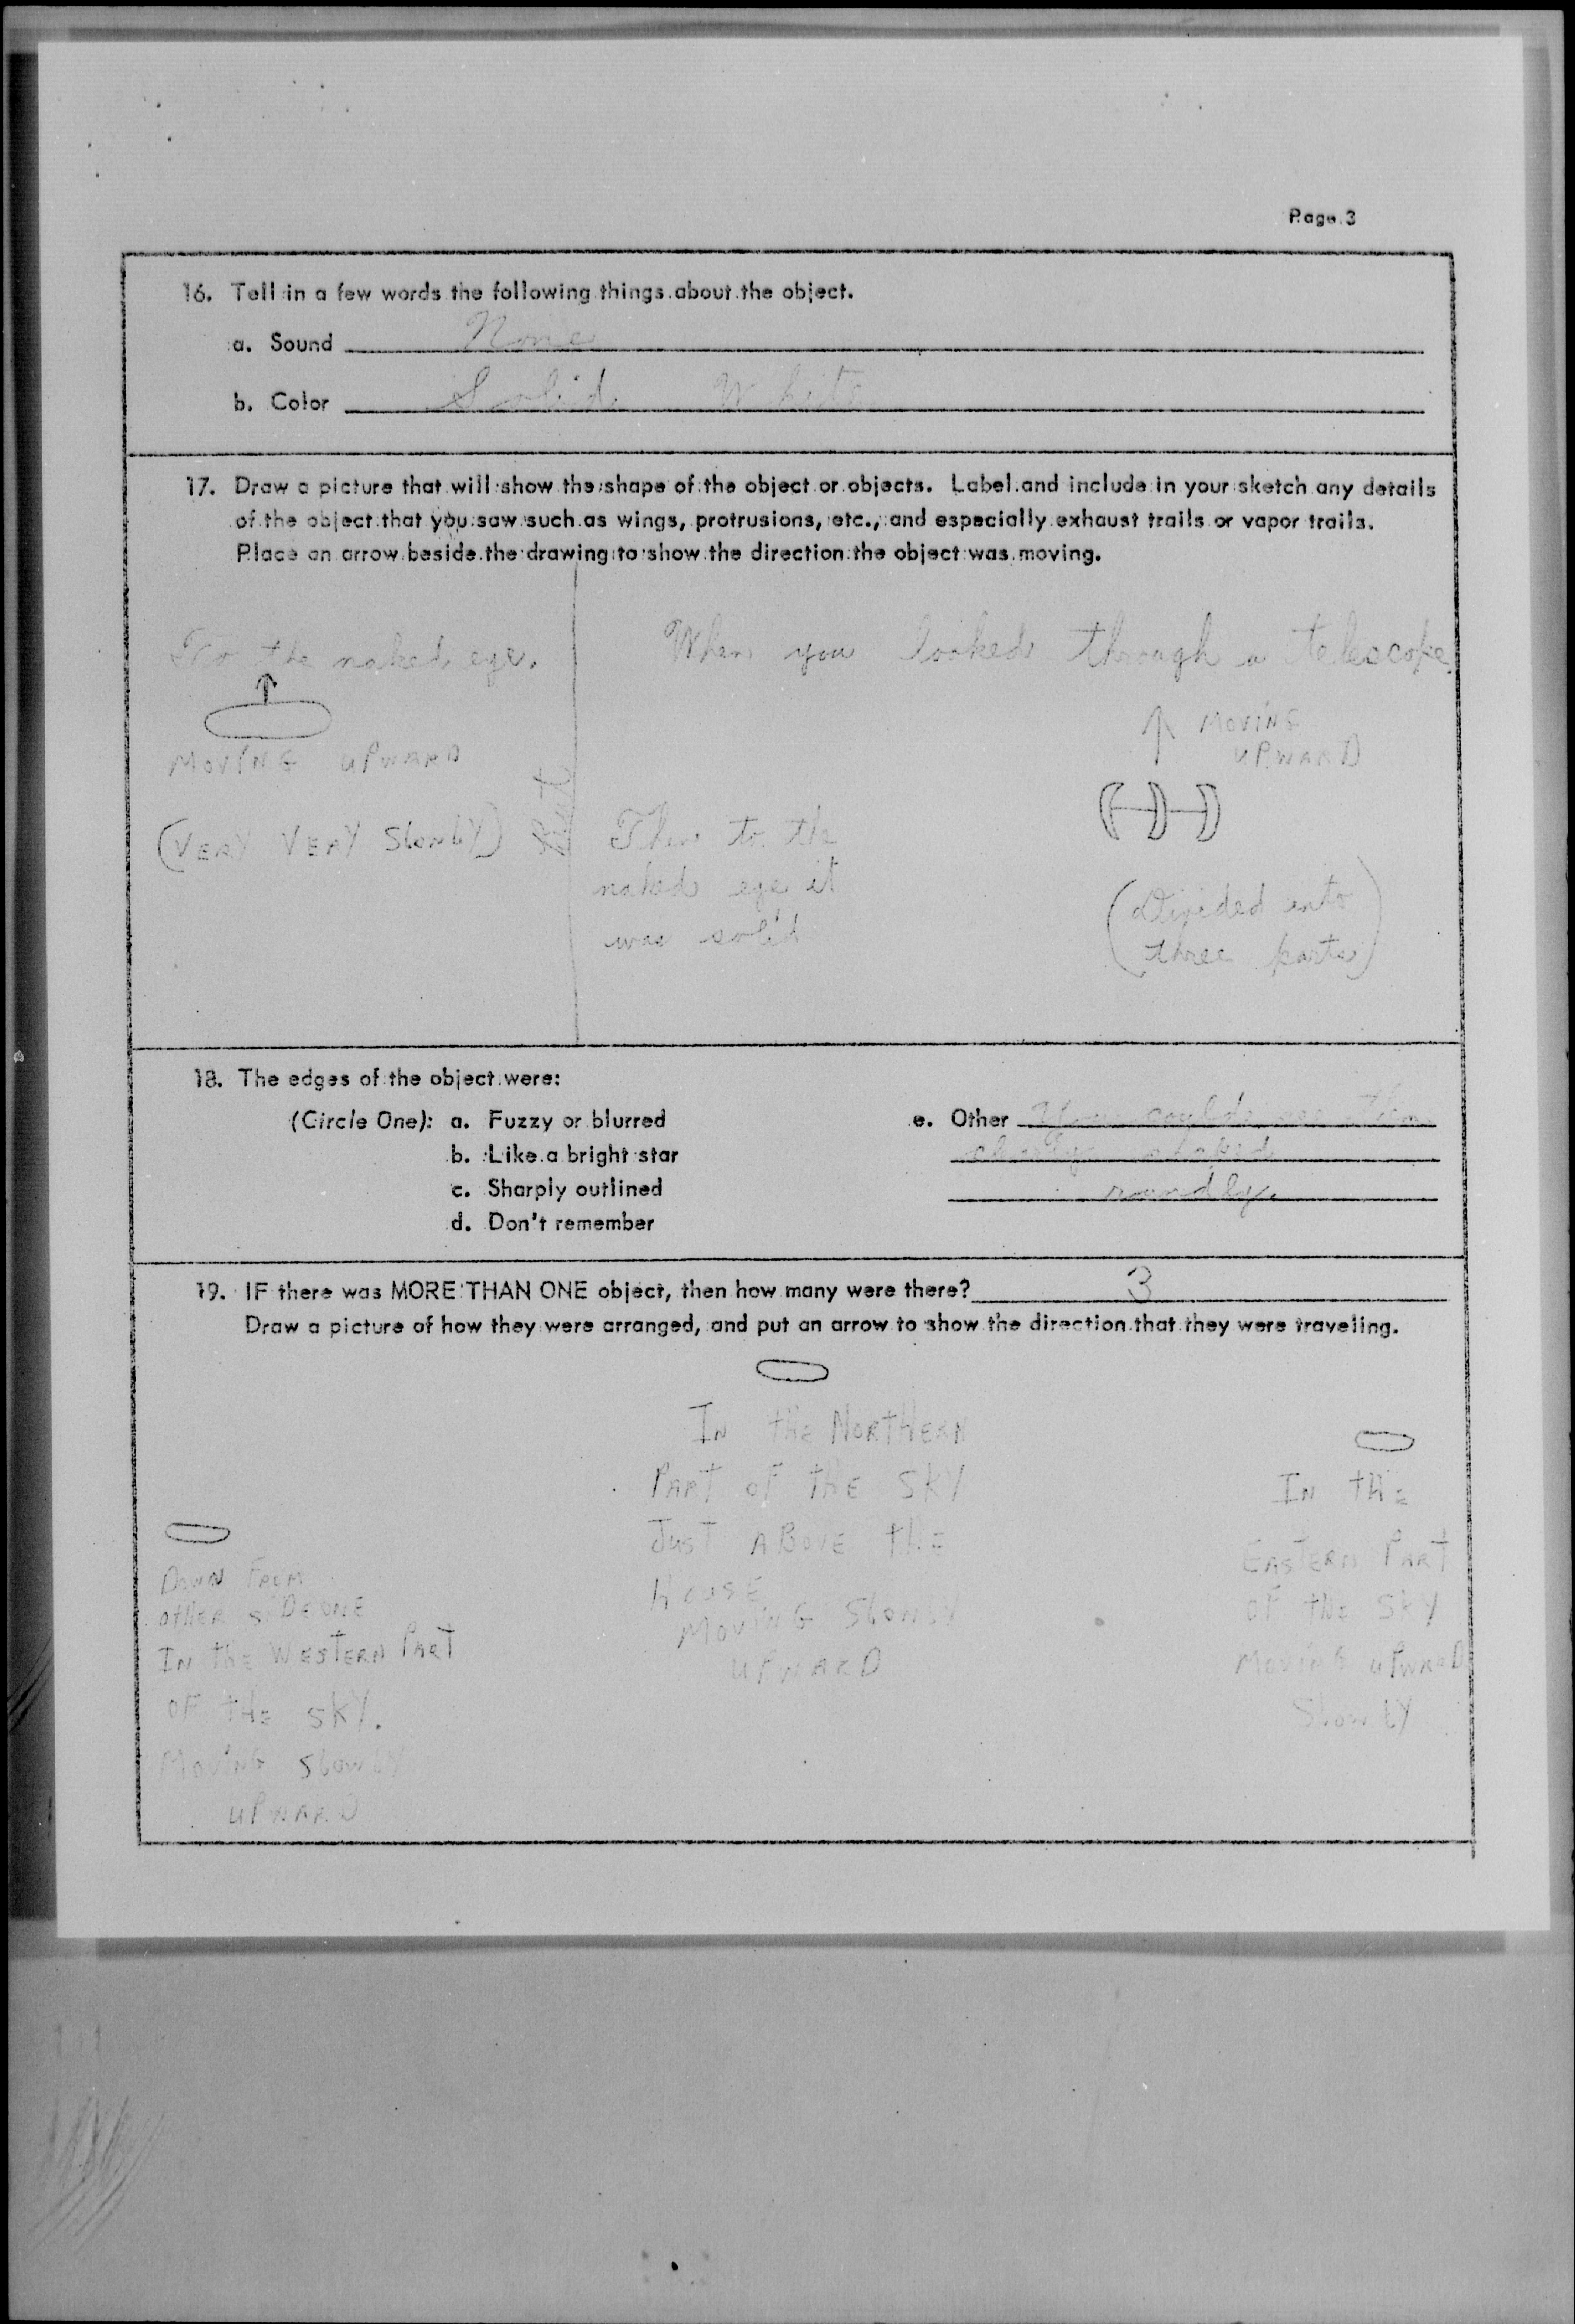 Page 3
16. Tell in a few words the following things about the object.
a. Sound None
b. Color Solid White
17. Draw a picture that will show the shape of the object or objects. Label and include in your sketch any details
of the object that you saw such as wings, protrusions, etc., and especially exhaust trails or vapor trails.
Place an arrow beside the drawing to show the direction the object was moving.
To the naked eye.
MOVING UPWARD
(VERY VERY SLOWLY)
When you looked through a telescope
MOVING
UPWARD
Then to the
naked eye it
was solid
(Divided into
three parts)
18. The edges of the object were:
(Circle One): a. Fuzzy or blurred
b. Like a bright star
c. Sharply outlined
d. Don't remember
e. Other You could see them
clearly shaped
roundly.
19. IF there was MORE THAN ONE object, then how many were there? 3
Draw a picture of how they were arranged, and put an arrow to show the direction that they were traveling.
DOWN FROM
OTHER SIDE ONE
IN THE WESTERN PART
OF THE SKY.
MOVING SLOWLY
UPWARD
IN THE NORTHERN
PART OF THE SKY
JUST ABOVE THE
HOUSE
MOVING SLOWLY
UPWARD
IN THE
EASTERN PART
OF THE SKY
MOVING UPWARD
SLOWLY